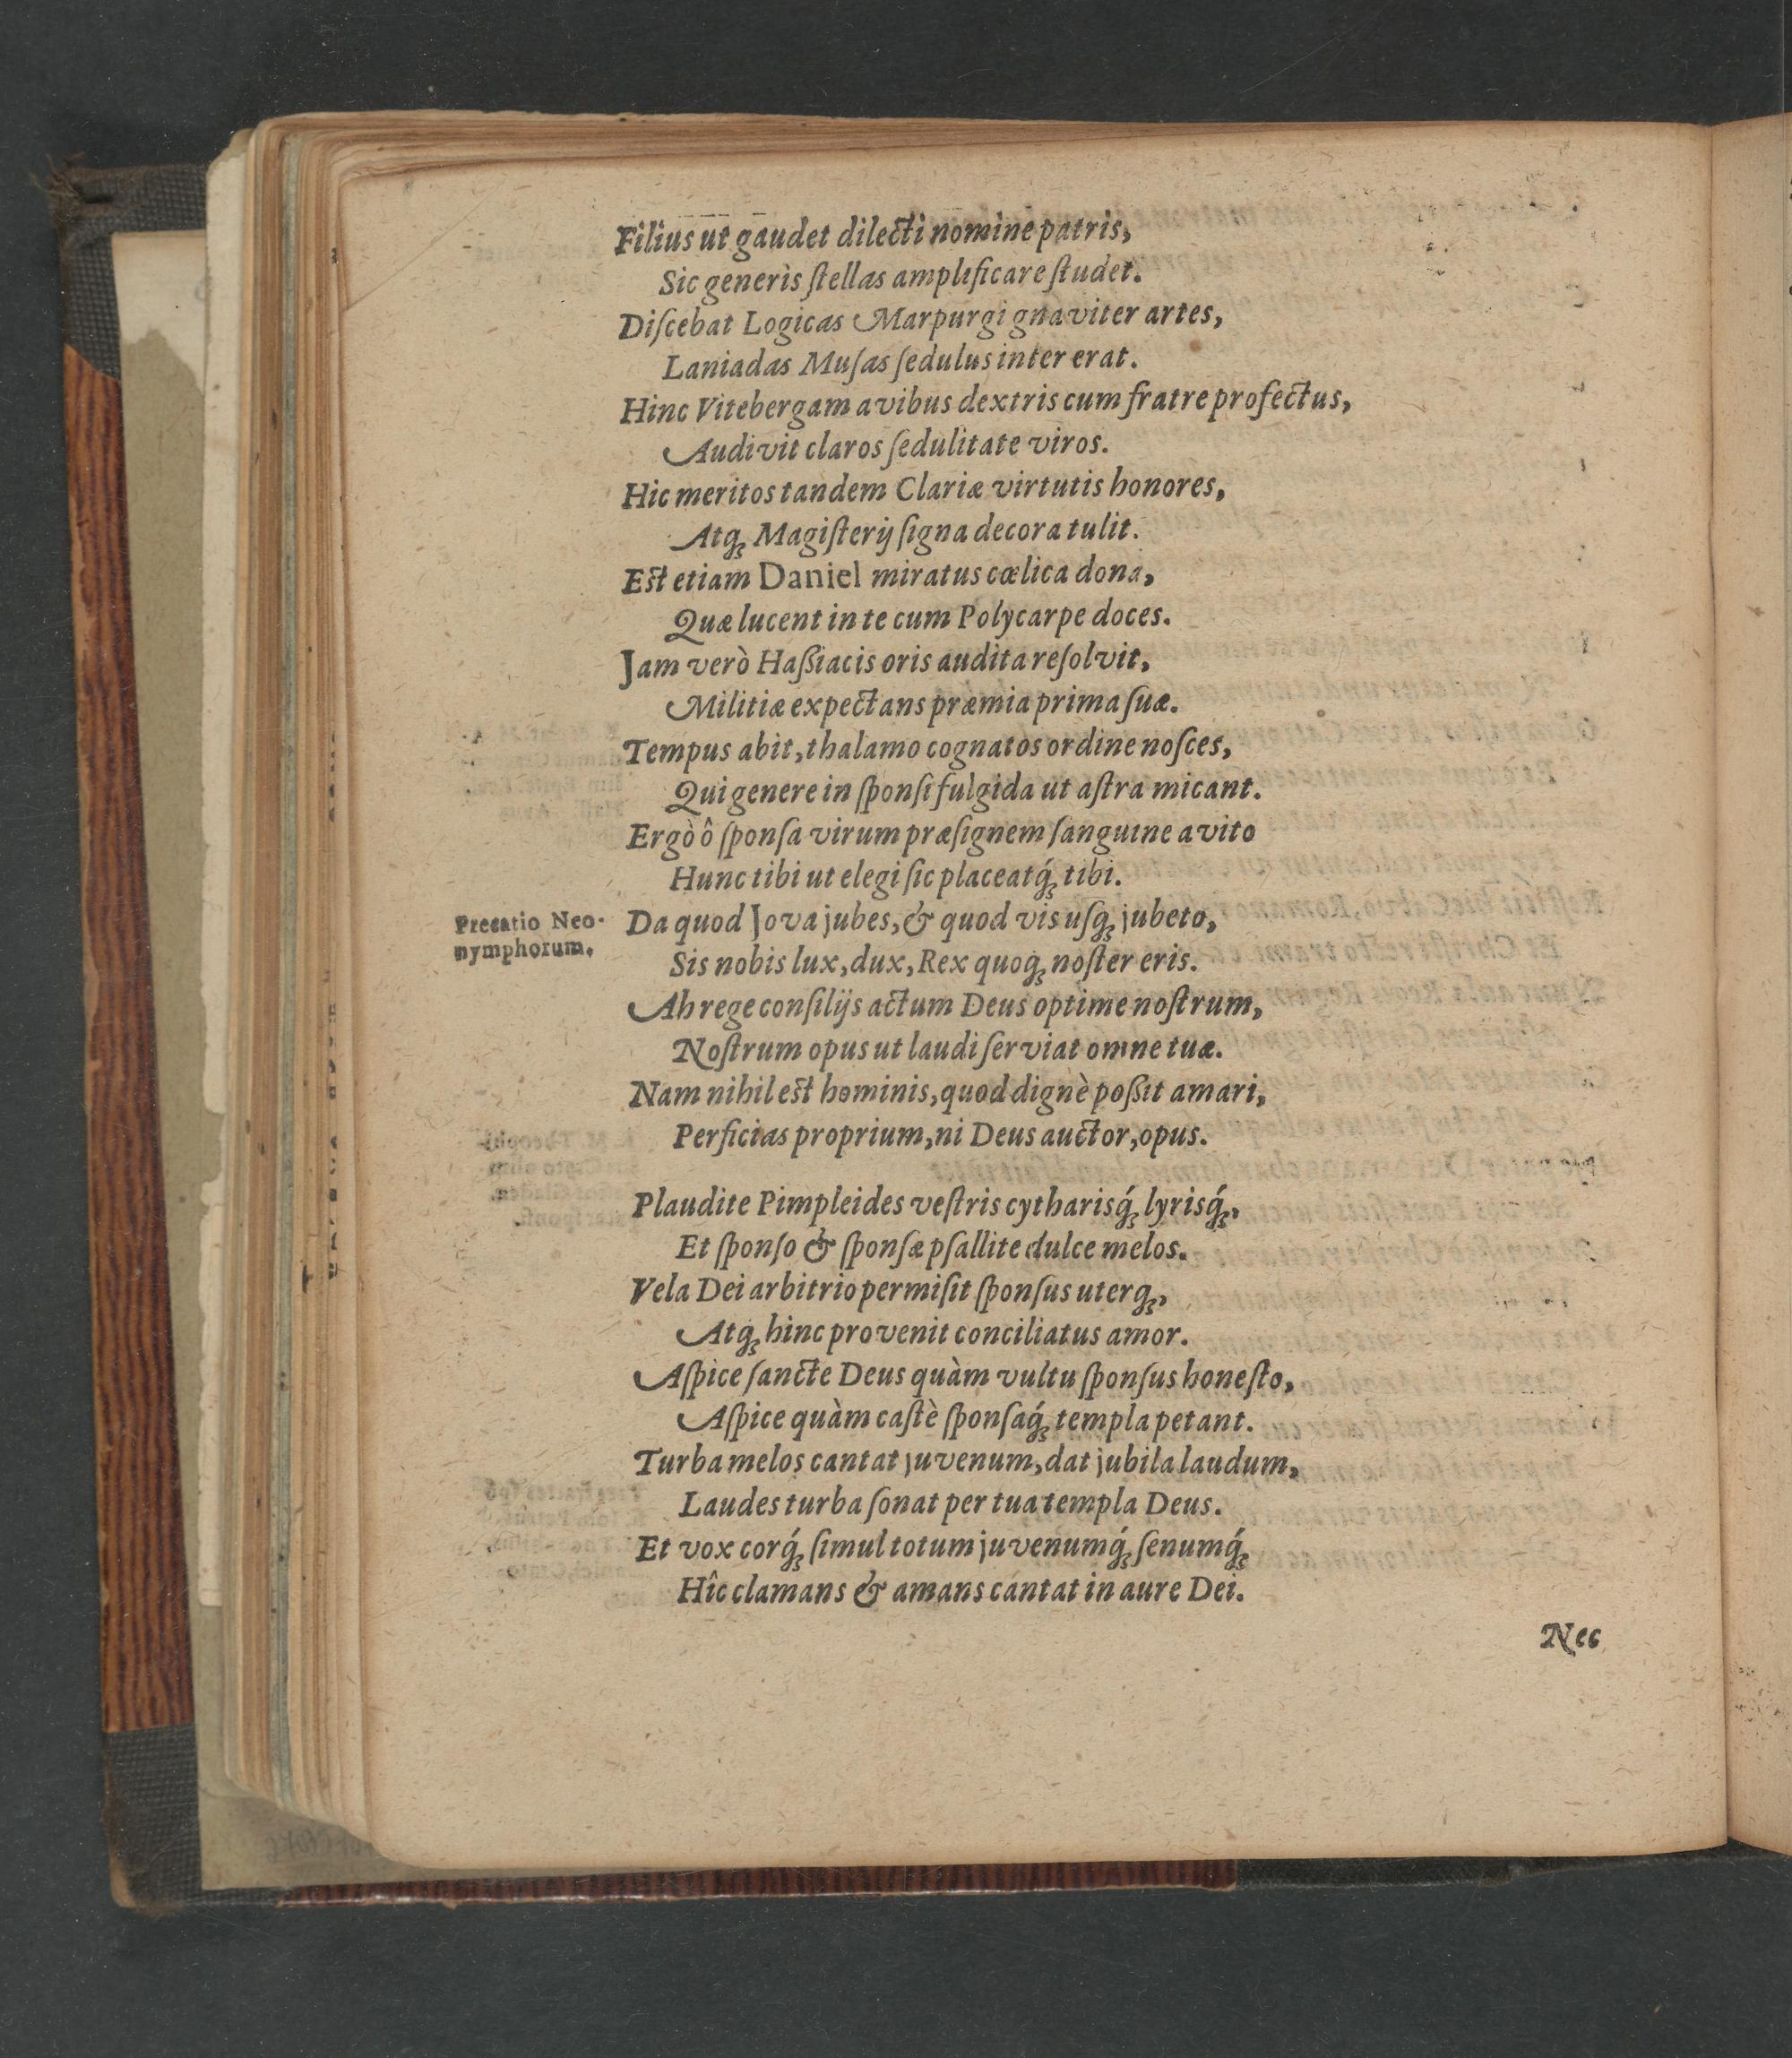 Filius ut gaudet dilecti nomine patris,
Sic generis ſtellas amplificare ſtudet.
Diſcebat Logicas Marpurgi gnaviter artes,
Laniadas Muſas ſedulus inter erat.
Hinc Vitebergam avibus dextris cum fratre profectus,
Audivit claros ſedulitate viros.
Hic meritos tandem Clariæ virtutis honores,
Atq́ꝫ Magiſterij ſigna decora tulit.
Eſt etiam Daniel miratus cœlica dona,
Quæ lucent in te cum Polycarpe doces.
Jam verò Haßiacis oris audita reſolvit,
Militiæ expectans præmia prima ſuæ.
Tempus abit, thalamo cognatos ordine noſces,
Qui genere in ſponſi fulgida ut aſtra micant.
Ergò ô ſponſa virum præſignem ſanguine avito
Hunc tibi ut elegi ſic placeatq́ꝫ tibi.
Precatio Neo-
nymphorum.
Da quod Jova jubes, & quod vis uſqꝫ jubeto,
Sis nobis lux, dux, Rex quoqꝫ noſter eris.
Ah rege conſilijs actum Deus optime noſtrum,
Noſtrum opus ut laudi ſerviat omne tuæ.
Nam nihil eſt hominis, quod dignè poßit amari,
Perficias proprium, ni Deus auctor, opus.
Plaudite Pimpleides veſtris cytharisq́ꝫ lyrisq́ꝫ,
Et ſponſo & ſponſæ pſallite dulce melos.
Vela Dei arbitrio permiſit ſponſus uterqꝫ,
Atqꝫ hinc provenit conciliatus amor.
Aſpice ſancte Deus quàm vultu ſponſus honeſto,
Aſpice quàm caſtè ſponſaq́ꝫ templa petant.
Turba melos cantat juvenum, dat jubila laudum,
Laudes turba ſonat per tua templa Deus.
Et vox corq́ꝫ ſimul totum juvenumq́ꝫ ſenumq́ꝫ
Hîc clamans & amans cantat in aure Dei.
Nec